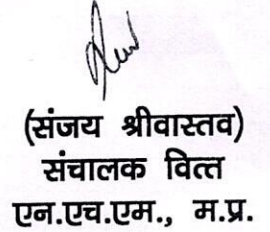 (संजय श्रीवास्तव)
संचालक वित्त
एन.एच.एम., म.प्र.